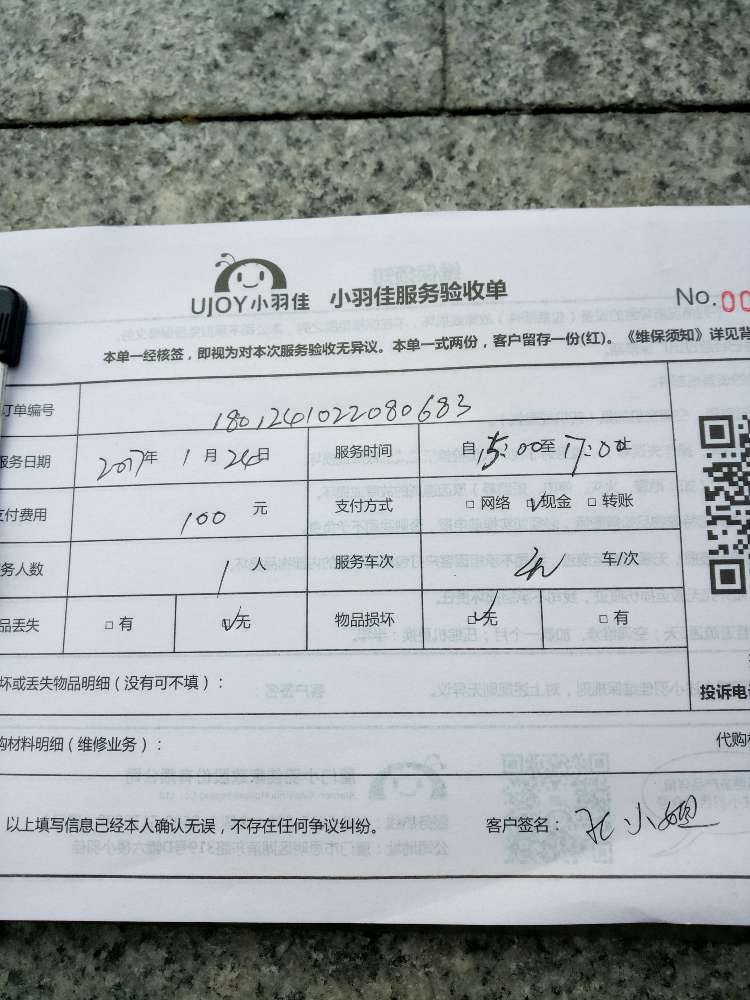 UJOY小羽佳 小羽佳服务验收单 No.00
本单一经核签，即视为对本次服务验收无异议。本单一式两份，客户留存一份(红)。《维保须知》详见背
订单编号 18012401022080683
服务日期 2017年 1月 24日 服务时间 自 15:00至 17:00止
支付费用 100 元 支付方式 □ 网络 ☑现金 □ 转账
务人数 1 人 服务车次 车/次
品丢失 □ 有 ☑无 物品损坏 ☑无 □ 有
坏或丢失物品明细（没有可不填）：
投诉电
购材料明细（维修业务）： 代购
以上填写信息已经本人确认无误，不存在任何争议纠纷。 客户签名： 小姐